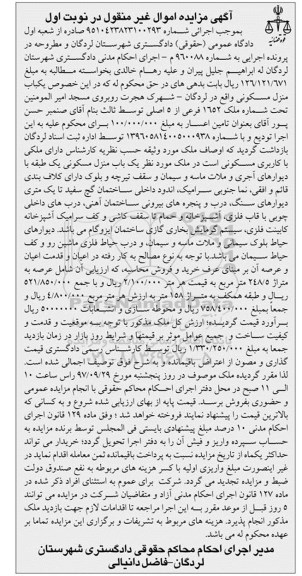 آگهی مزایده اموال غیر منقول در نوبت اول
بموجب اجرائی شماره ۹۵۱۰۴۲۳۸۲۳۱۰۰۲۹۳ صادره از شعبه اول
دادگاه عمومی (حقوقی) دادگستری شهرستان لردگان و مطروحه در
پرونده اجرایی به شماره ۹۶۰۰۸۸ م – اجرای احکام مدنی دادگستری شهرستان
لردگان له ابراهیم جلیل پیران و علیه رهام خالدی بخواسته مطالبه به مبلغ
۱۲۶/۱۲۱/۶۷۱ ریال بابت بدهی های در حق محکوم له که در این خصوص یکباب
منزل مسکونی واقع در لردگان – شهرک هجرت روبروی مسجد امیر المومنین
تحت شماره ملک ۱۶۵۲ فرعی از ۵ اصلی توسط ثالث بنام آقای صنمبر حسن
پور بعنوان تامین اعتبار به مبلغ ۱۰۰/۰۰۰/۰۰۰ برای محکوم علیه به این
اجرا تودیع و با شماره ۱۳۹۶۰۵۸۱۴۰۰۵۰۰۰۹۳۸ توسط اداره ثبت اسناد لردگان
بازداشت گردید که اوصاف ملک مورد وثیقه حسب نظریه کارشناسی دارای ملکی
با کاربری مسکونی است در ملک مورد نظر یک باب منزل مسکونی یک طبقه با
دیوارهای آجری و ملات ماسه و سیمان و سقف تیرچه و بلوک دارای کلاف بندی
قائم و افقی، نما جنوبی سرامیک، اندود داخلی ساختمان گچ سفید تا یک متری
دیوارهای سنگ، درب و پنجره های بیرونی ساختمان آهنی، درب های داخلی
چوبی با قاب فلزی، آشپزخانه و حمام تا سقف کاشی و کف سرامیک آشپزخانه
کابینت فلزی، سیستم گرمایش بخاری گازی ساختمان ایزوگام می باشد. دیوارهای
حیاط بلوک سیمانی و ملات ماسه و سیمان، و درب حیاط فلزی ماشین رو و کف
حیاط سیمان می باشد. با توجه به نوع مصالح به کار رفته در اعیان و قدمت اعیان
و عرصه آن بر مبنای عرف خرید و فروش محاسبه، که ارزیابی آن شامل عرصه به
متراژ ۲۴۸/۵ متر مربع به قیمت هر متر ۲/۱۰۰/۰۰۰ ریال و با جمع ۵۲۱/۸۵۰/۰۰۰
ریال و طبقه همکف به متراژ ۱۵۸ متر به ارزش هر متر مربع ۴/۸۰۰/۰۰۰ ریال و
جمعاً بمبلغ ۷۵۸/۴۰۰/۰۰۰ ریال و محوطه سازی و انشعابات ۵۰۰۰۰۰۰۰ ریال
برآورد قیمت گردیده؛ ارزش کل ملک مذکور با توجه به موقعیت و قدمت و
کیفیت ساخت و جمیع عوامل موثر بر قیمتها و شرایط روز بازار در زمان بازدید
جمعاً به مبلغ ۱/۳۳۰/۲۵۰/۰۰۰ ریال توسط کارشناس رسمی دادگستری قیمت
گذاری و مصون از اعتراض باقیمانده. با شرح فوق توصیف اجمالی شده است.
لذا مقرر گردیده ملک موصوف در روز پنجشنبه مورخ ۹۷/۰۹/۲۹ راس ساعت ۱۰
الی ۱۱ صبح در محل دفتر اجرای احکام محاکم حقوقی با انجام مزایده عمومی
و حضوری بفروش برسد. قیمت پایه از بهای ارزیابی شده شروع و به کسانی که
بالاترین قیمت را پیشنهاد نمایند فروخته خواهد شد؛ وفق ماده ۱۲۹ قانون اجرای
احکام مدنی ۱۰ درصد مبلغ پیشنهادی بایستی فی المجلس توسط برنده مزایده به
حساب سپرده واریز و فیش آن را به دفتر اجرا تحویل گردد؛ خریدار می تواند
حداکثر یکماه از تاریخ مزایده نسبت به پرداخت باقیمانده ثمن معامله اقدام نماید در
غیر اینصورت مبلغ واریزی اولیه با کسر هزینه های مربوطه به نفع صندوق دولت
ضبط و مزایده تجدید می گردد. شرکت برای عموم به استثنای افراد ذکر شده در
ماده ۱۲۷ قانون اجرای احکام مدنی آزاد و متقاضیان شرکت در مزایده می توانند
۵ روز قبل از موعد مقرر به این اجرا مراجعه تا اقدامات لازم جهت بازدید ملک
مذکور انجام پذیرد. هزینه های مربوط به تشریفات و برگزاری این مزایده تماما بر
عهده محکوم له می باشد.
مدیر اجرای احکام محاکم حقوقی دادگستری شهرستان
لردگان–فاضل دانیالی